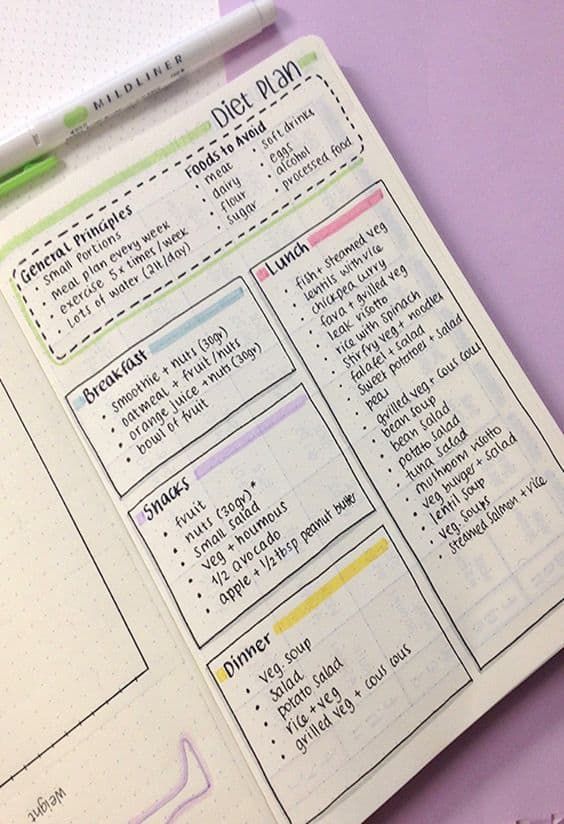 MILDLINER
Diet Plan
General Principles
• small portions
• meal plan every week
• exercise 5x times/week
• Lots of water (2lt/day)
Foods to Avoid
• meat
• dairy
• flour
• sugar
• soft drinks
• eggs
• alcohol
• processed food
Breakfast
• smoothie + nuts (30gr)
• oatmeal + fruit/nuts
• orange juice + nuts (30gr)
• bowl of fruit
Snacks
• fruit
• nuts (30gr)*
• small salad
• veg + houmous
• 1/2 avocado
• apple + 1/2 tbsp peanut butter
Dinner
• veg. soup
• salad
• potato salad
• rice + veg
• grilled veg + cous cous
Lunch
• fish + steamed veg
• lentils with rice
• chickpea curry
• fava + grilled veg
• leak risotto
• rice with spinach
• stirfry veg + noodles
• falafel + salad
• sweet potatoes + salad
• peas
• grilled veg + cous cous
• bean soup
• bean salad
• potato salad
• tuna salad
• mushroom risotto
• veg burger + salad
• lentil soup
• veg. soups
• steamed salmon + rice
Weight